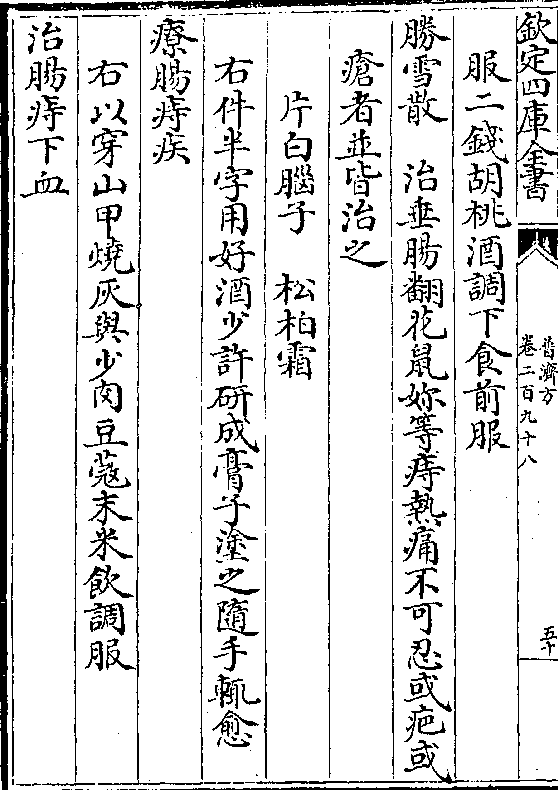 欽定四庫全書
普濟方
卷二百九十八
五十
服二錢胡桃酒調下食前服
勝雪散　治垂腸翻花鼠妳等痔熱痛不可忍或疤或
瘡者並皆治之
片白腦子　松柏霜
右件半字用好酒少許研成膏子塗之隨手輒愈
療腸痔疾
右以穿山甲燒灰與少肉豆蔻末米飲調服
治腸痔下血